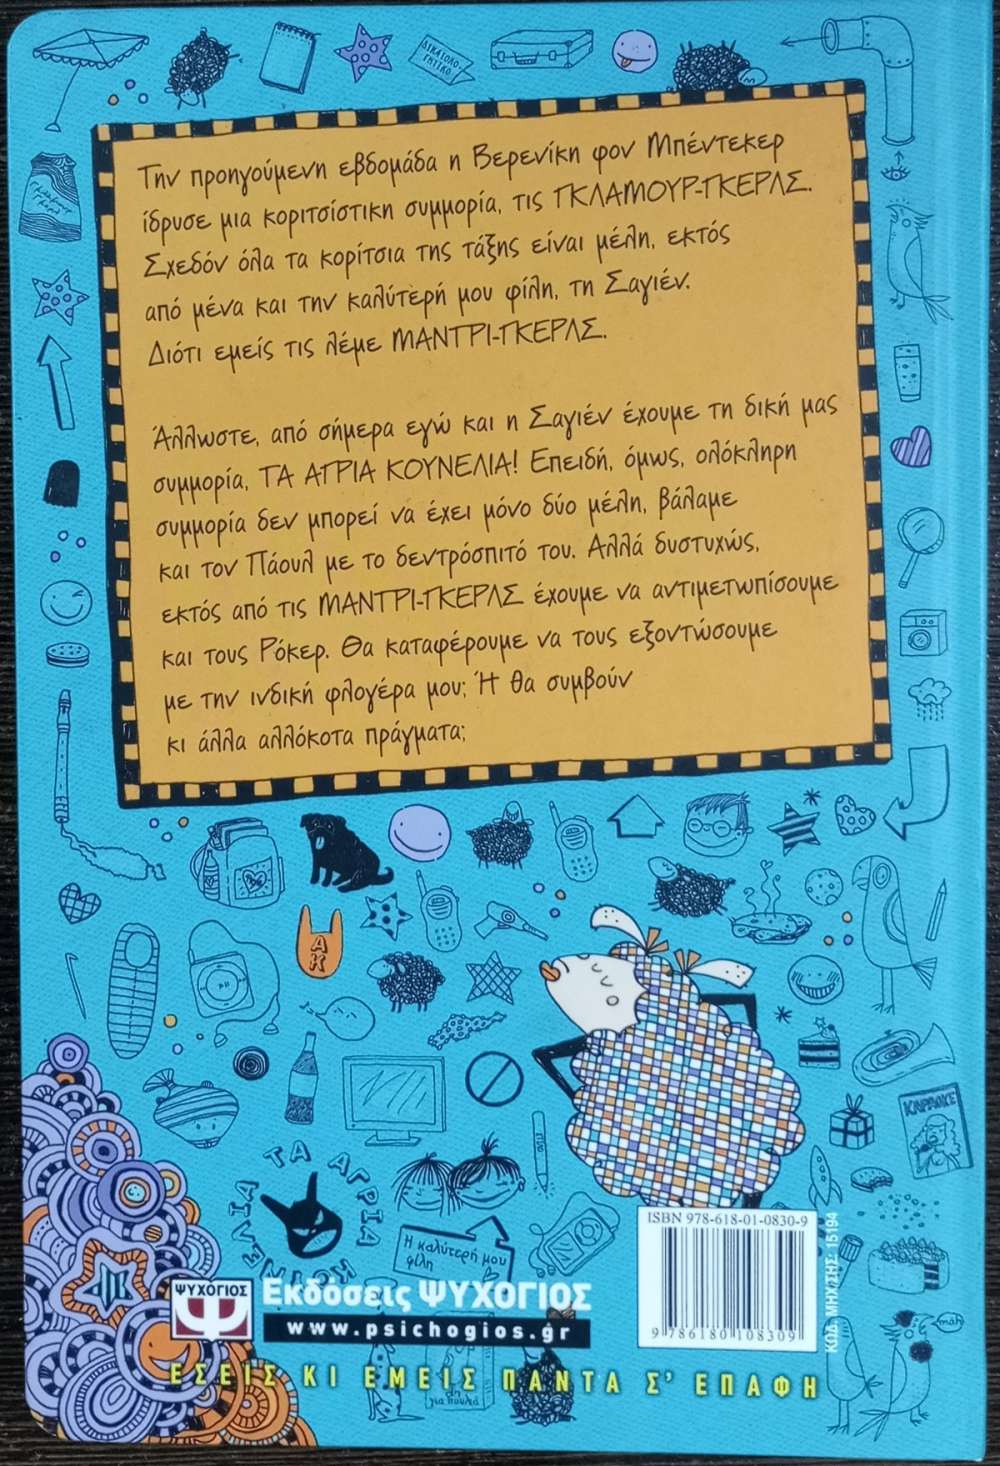 ΔΙΚΑΙΟΛΟ-
ΓΗΤΙΚΟ
Την προηγούμενη εβδομάδα η Βερενίκη φον Μπέντεκερ
ίδρυσε μια κοριτσίστικη συμμορία, τις ΓΚΛΑΜΟΥΡ-ΓΚΕΡΛΣ.
Σχεδόν όλα τα κορίτσια της τάξης είναι μέλη, εκτός
από μένα και την καλύτερή μου φίλη, τη Σαγιέν.
Διότι εμείς τις λέμε ΜΑΝΤΡΙ-ΓΚΕΡΛΣ.
Άλλωστε, από σήμερα εγώ και η Σαγιέν έχουμε τη δική μας
συμμορία, ΤΑ ΑΓΡΙΑ ΚΟΥΝΕΛΙΑ! Επειδή, όμως, ολόκληρη
συμμορία δεν μπορεί να έχει μόνο δύο μέλη, βάλαμε
και τον Πάουλ με το δεντρόσπιτό του. Αλλά δυστυχώς,
εκτός από τις ΜΑΝΤΡΙ-ΓΚΕΡΛΣ έχουμε να αντιμετωπίσουμε
και τους Ρόκερ. Θα καταφέρουμε να τους εξοντώσουμε
με την ινδική φλογέρα μου; Ή θα συμβούν
κι άλλα αλλόκοτα πράγματα;
ΑΚ
ΚΑΡΑΟΚΕ
ΤΑ ΑΓΡΙΑ
Η καλύτερή μου
φίλη
ISBN 978-618-01-0830-9
9 786180 108309
ΚΩΔ. ΜΗΧ/ΣΗΣ: 15194
ΨΥΧΟΓΙΟΣ
Εκδόσεις ΨΥΧΟΓΙΟΣ
www.psichogios.gr
μάη
ΕΣΕΙΣ ΚΙ ΕΜΕΙΣ ΠΑΝΤΑ Σ' ΕΠΑΦΗ
για πουλιά